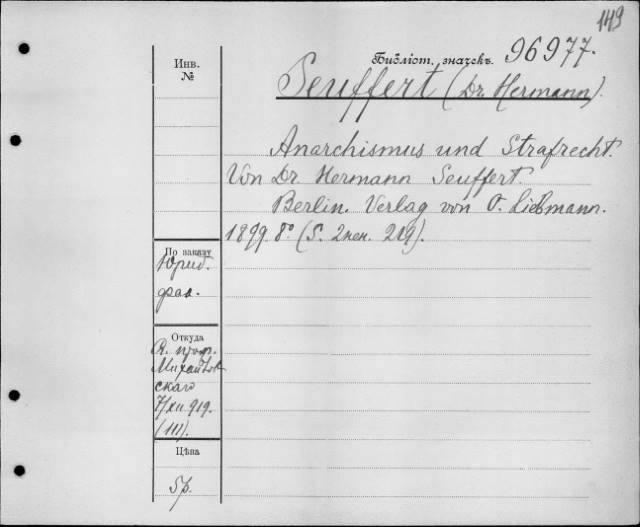 149
Инв.
№
Библіот. значекъ. 96977.
Seuffert (Dr. Hermann).
Anarchismus und Strafrecht.
Von Dr. Hermann Seuffert.
Berlin. Verlag von O. Liebmann.
1899 8° (S. 2нен. 219).
По заказу
Юрид.
фак.
Откуда
проф.
Михайлов
скаго
7/XII 919.
(III).
Цѣна
5р.